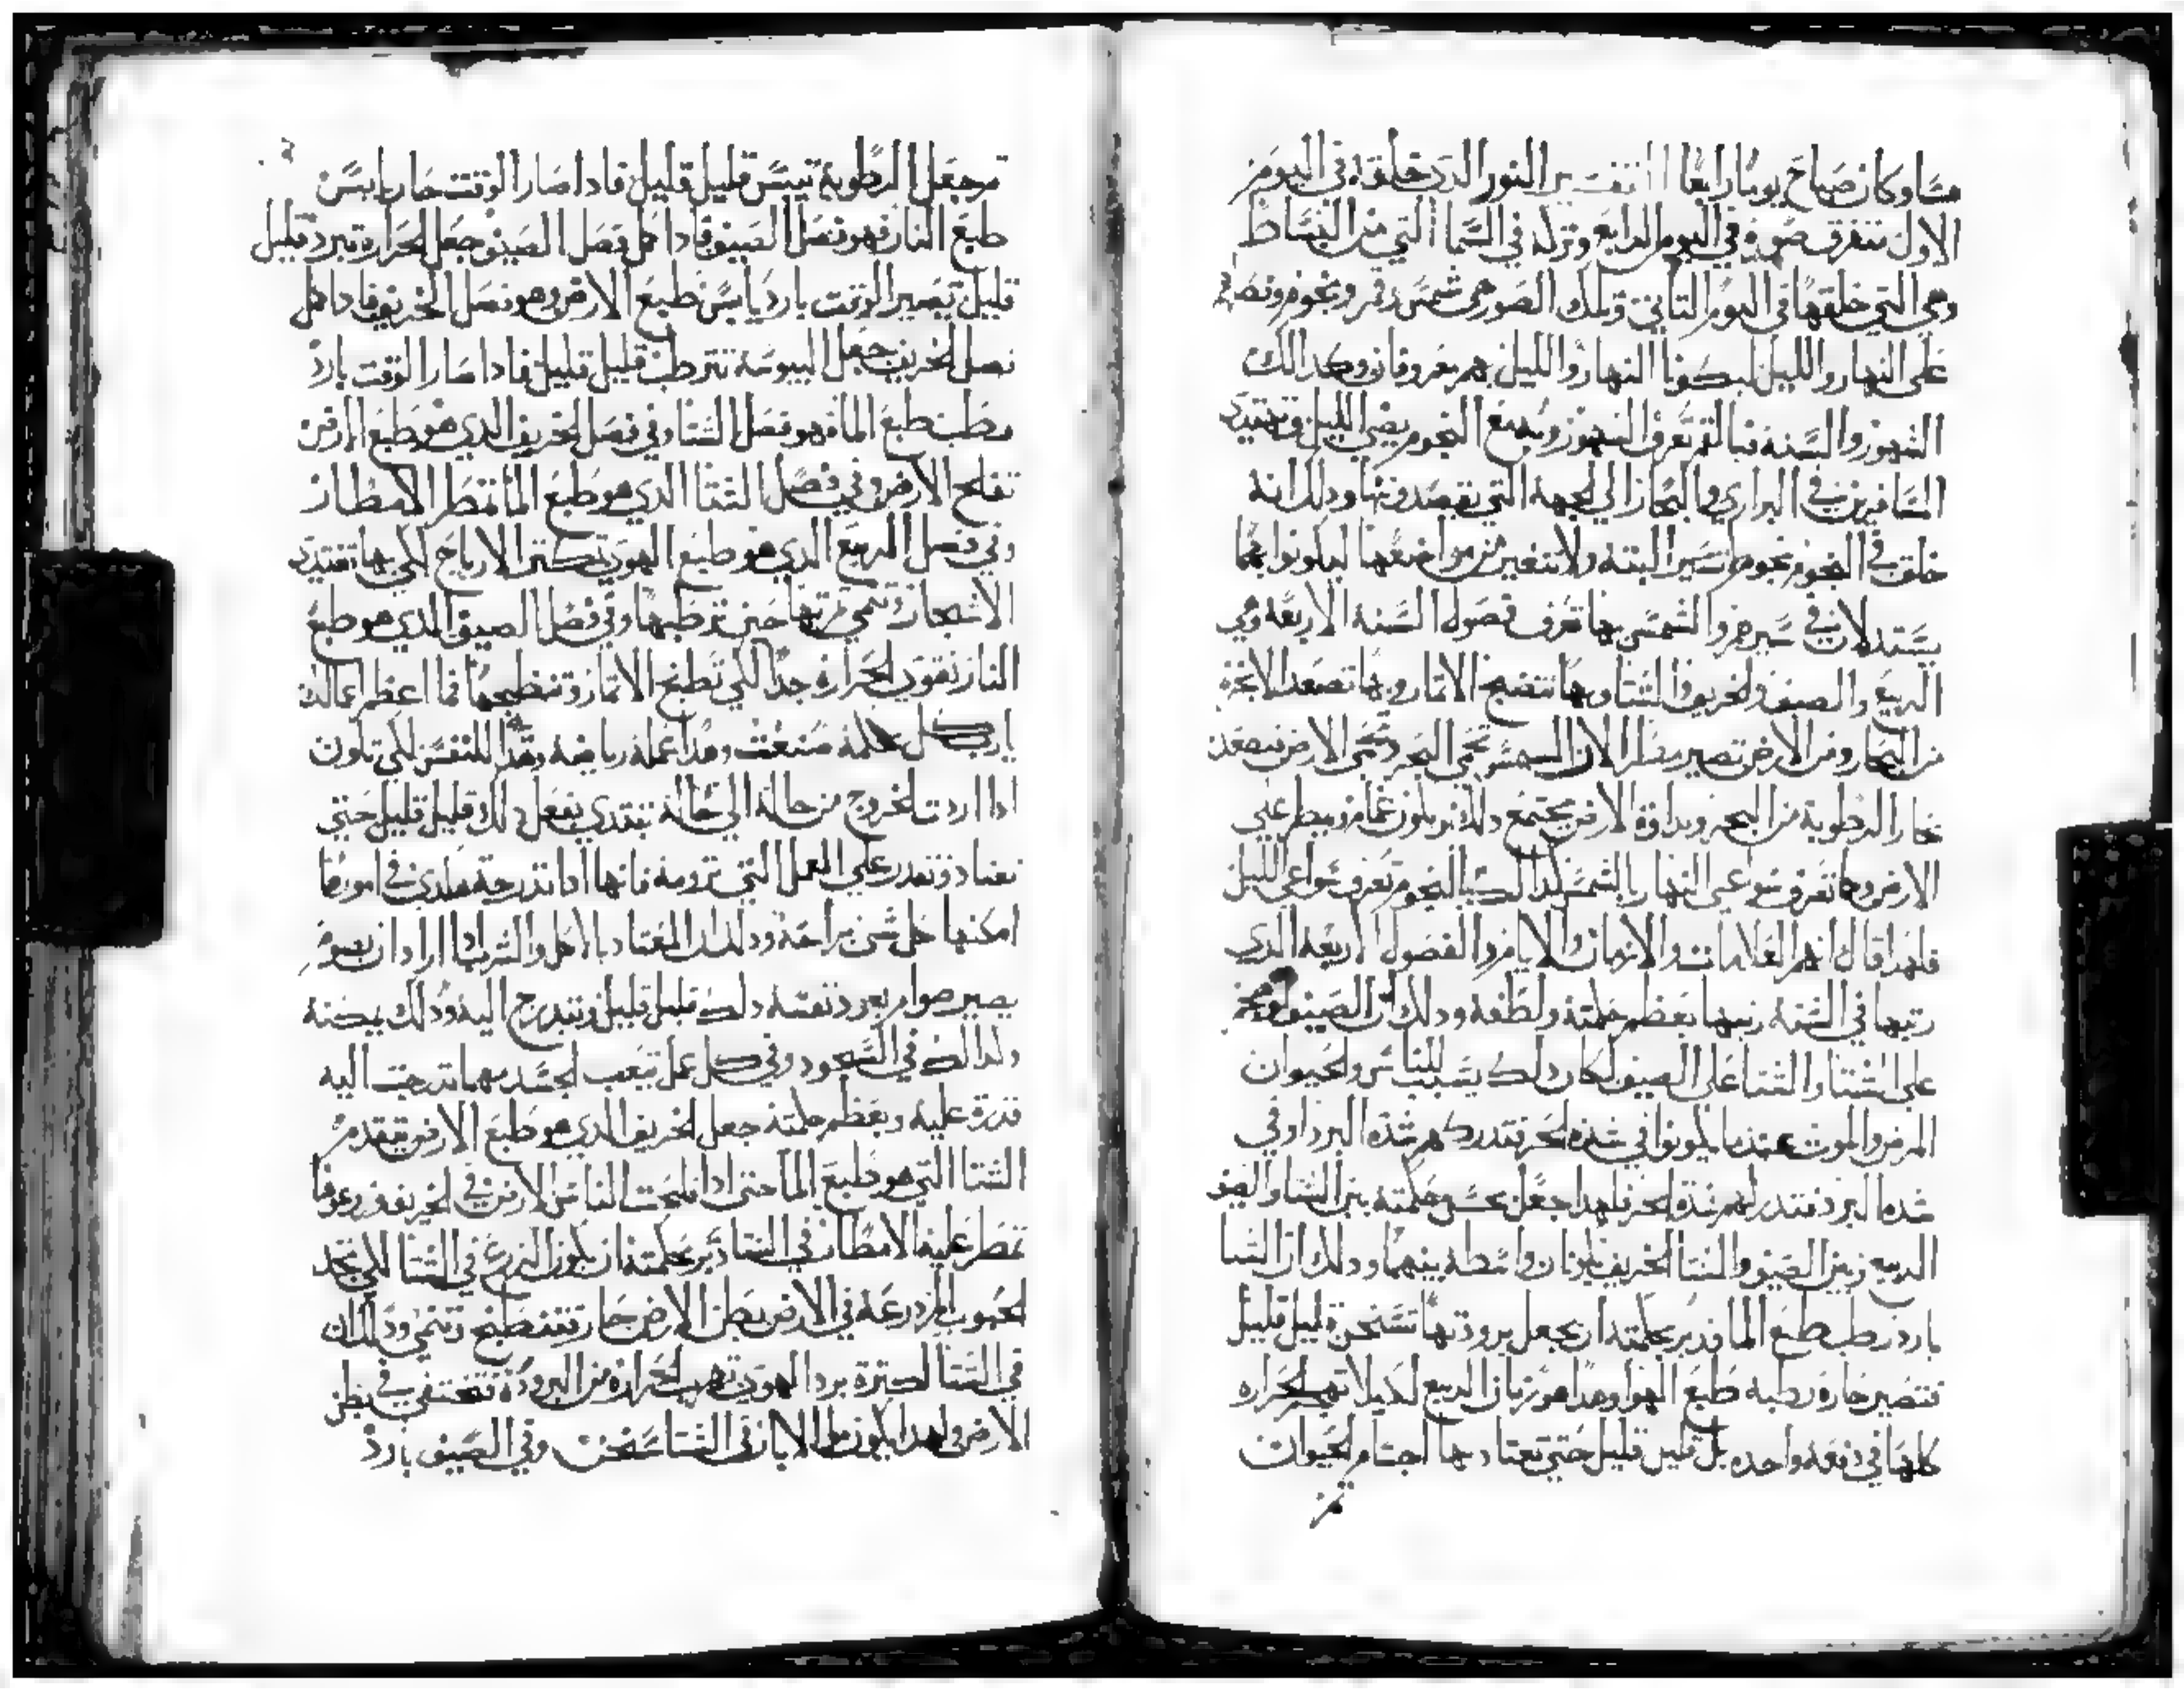 مسا وكان صباح يوما رابعا التفسير النور الدي خلقه في اليوم
الاول تتفرق صوره في اليوم الرابع وتركه في السما التي من البساط
وهي التي خلقها في اليوم التاني وتلك الصور هي شمس وقمر ونجوم
على النهار والليل ليكونا النهار والليل بهم يعرفان وكدالك
الشهور والسنه فبالقمر تعرف الشهور وجميع النجوم يضي الليل وتهتدي
المسافرين في البراري والبحار الي الجهة التي يقصدونها ودلك انه
خلق في النجوم نجوم لا تسير البتة ولا تتغير من مواضعها ليكونوا بها
يستدلان في سيرهم والشمس بها تعرف فصول السنه الاربعه وهي
الربيع والصيف والخريف والشتا وبها تنضج الاتمار وبها تصعد الابخرة
من البحار ومن الارض تصير مطر لان الشمس تحمي البحر وتحمي الارض فيصعد
بخار الرطوبة من البحر ونداوة الارض يجتمع دلك يكون غمام ويمطر علي
الارض وبها تعرف سواعي النهار بالشمس كدالك بالنجوم تعرف سواعي الليل
فلهدا قال انهم العلامات والازمان والايام والفصول الاربعه الدي
رتبها في السنة رتبها بعظم حكمته ولطفه ودلك ان الصيف
على الشتا والشتا على الصيف لكان دلك يسبب للناس والحيوان
المرض والموت عندما يكونوا في شدة الحر تدركهم شدة البرد او في
شدة البرد فتدركهم شدة الحر فلهدا جعل بحسن حكمته بين الشتا والصيف
الربيع وبين الصيف والشتا الخريف يكونان واسطة بينهما ودلك ان الشتا
بارد رطب طبع الما فدبر بحكمته ان يجعل برودتها تسخن قليل قليل
فتصير حاره رطبه طبع الهوا وهدا هو زمان الربيع لكيلا تهب الحراره
كلها في دفعه واحده بل قليل قليل حتي تعتاد بها اجسام الحيوان
تم
تم جعل الرطوبة تيبس قليل قليل فادا صار الوقت حار يابس
طبع النار فهو فصل الصيف فادا كمل فصل الصيف جعل الحرارة تبرد قليل
قليل تيصير الوقت بارد يابس طبع الارض وهو فصل الخريف فادا كمل
فصل الخريف جعل اليبوسة تترطب قليل قليل فادا صار الوقت بارد
رطب طبع الما فهو فصل الشتا وفي فصل الخريف الدي هو طبع الارض
تفلح الارض وفي فصل الشتا الدي هو طبع الما تمطر الامطار
وفي فصل الربيع الدي هو طبع الهوي تكتر الارياح لكي بها تغتدي
الاشجار وتنمي تربتها حين ترطبها وفي فصل الصيف الدي هو طبع
النار تقوي الحرارة جدا لكي تطبخ الاتمار وتنضجها فما اعظم اعمالك
يارب كل بحكمة صنعت وهدا عمله رياضة وهدا للنفس لكي تكون
ادا اردت الخروج من حالة الي حالة تبتدي تفعل دلك قليل قليل حتي
تعتاد وتقدر علي العمل التي ترومه فانها ادا تدرجة هكدي في امورها
امكنها كل شي براحة ودلك ان المعتاد بالاكل والشرب ادا اراد ان
يصير صوام يعود نفسه دلك قليل قليل وتتدرج اليه ودلك يمكنه
وكدالك في السجود وفي كل عمل تتعب الجسد مهما تدرجت اليه
قدرة عليه وبعظم حكمته جعل الخريف الدي هو طبع الارض يتقدم
الشتا التي هو طبع الما حتى ادا فلحت الناس الارض في الخريف وزرعوها
تمطر عليها الامطار في الشتا دبر بحكمته ان يكون الزرع في الشتا لكي تجد
الحبوب المزدرعة في الارض بطن الارض حار فتنطبخ وتنمي ودلك ان
في الشتا لكترة برد الهوي تهرب الحرارة من البرودة فتختفي في بطن
الارض ولهدا يكون ما الابار في الشتا سخن وفي الصيف بارد